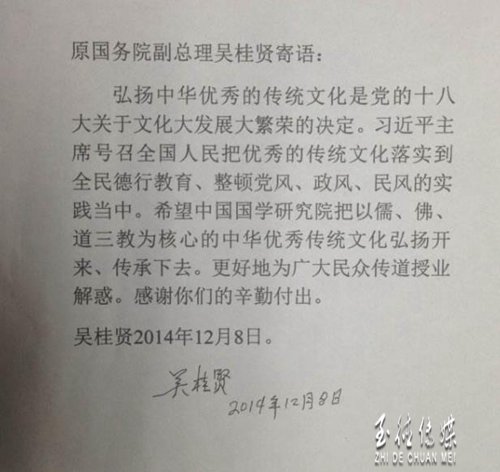 原国务院副总理吴桂贤寄语：
弘扬中华优秀的传统文化是党的十八
大关于文化大发展大繁荣的决定。习近平主
席号召全国人民把优秀的传统文化落实到
全民德行教育、整顿党风、政风、民风的实
践当中。希望中国国学研究院把以儒、佛、
道三教为核心的中华优秀传统文化弘扬开
来、传承下去。更好地为广大民众传道授业
解惑。感谢你们的辛勤付出。
吴桂贤2014年12月8日。
吴桂贤
2014年12月8日
至德传媒
ZHI DE CHUAN MEI